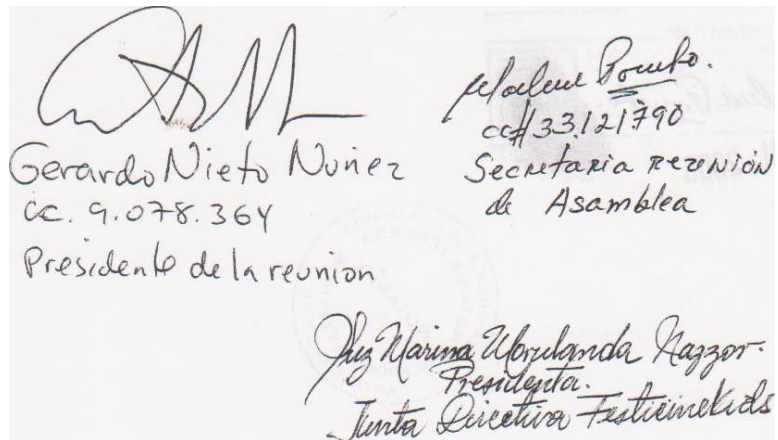 Gerardo Nieto Nuñez
cc. 9.078.364
Presidente de la reunion
Marlene Pombo.
cc# 33.121790
Secretaria REUNIÓN
de Asamblea
Luz Marina Marulanda
Presidenta.
Junta Directiva Festicinekids